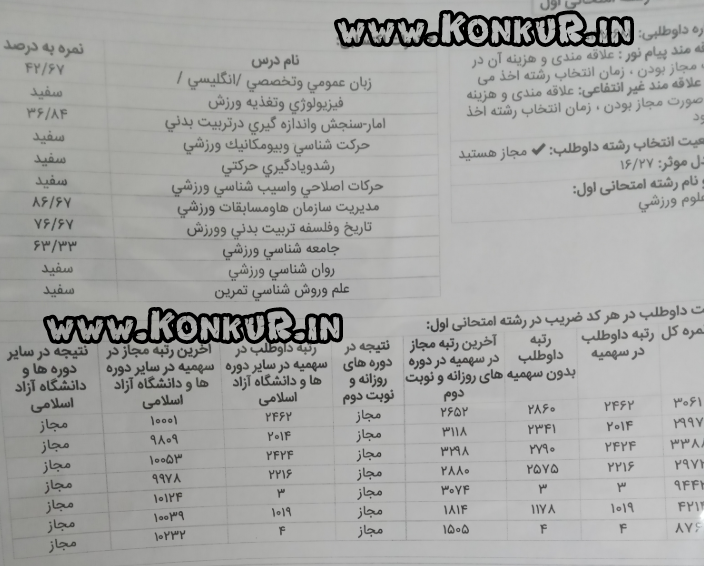 www.Konkur.in
نام درس نمره به درصد
زبان عمومي وتخصصي /انگليسي / ۴۲/۶۷
فيزيولوژي وتغذيه ورزش سفید
امار-سنجش واندازه گيري درتربيت بدني ۳۶/۸۴
حركت شناسي وبيومكانيك ورزشي سفید
رشدويادگيري حركتي سفید
حركات اصلاحي واسيب شناسي ورزشي سفید
مديريت سازمان هاومسابقات ورزشي ۸۶/۶۷
تاريخ وفلسفه تربيت بدني وورزش ۷۶/۶۷
جامعه شناسي ورزشي ۶۳/۳۳
روان شناسي ورزشي سفید
علم وروش شناسي تمرين سفید
اول
داوطلبی:
مند پیام نور : علاقه مندی و هزینه آن در
مجاز بودن ، زمان انتخاب رشته اخذ می
علاقه مند غیر انتفاعی: علاقه مندی و هزینه
صورت مجاز بودن ، زمان انتخاب رشته اخذ
انتخاب رشته داوطلب: ✔ مجاز هستید
موثر: ۱۶/۲۷
و نام رشته امتحانی اول:
علوم ورزشي
www.Konkur.in
داوطلب در هر کد ضریب در رشته امتحانی اول:
نمره کل
رتبه داوطلب در سهمیه
رتبه داوطلب بدون سهمیه
آخرین رتبه مجاز در سهمیه در دوره های روزانه و نوبت دوم
نتیجه در دوره های روزانه و نوبت دوم
رتبه داوطلب در سهمیه در سایر دوره ها و دانشگاه آزاد اسلامی
آخرین رتبه مجاز در سهمیه در سایر دوره ها و دانشگاه آزاد اسلامی
نتیجه در سایر دوره ها و دانشگاه آزاد اسلامی
۳۰۶۱ ۲۴۶۲ ۲۸۶۰ ۲۶۵۲ مجاز ۲۴۶۲ ۱۰۰۰۱ مجاز
۲۹۹۷ ۲۰۱۴ ۲۳۴۱ ۳۱۱۸ مجاز ۲۰۱۴ ۹۸۰۹ مجاز
۳۳۸۸ ۲۴۲۴ ۲۷۹۰ ۳۲۹۸ مجاز ۲۴۲۴ ۱۰۰۵۳ مجاز
۲۹۷۲ ۲۲۱۶ ۲۵۷۵ ۲۸۸۰ مجاز ۲۲۱۶ ۹۹۷۸ مجاز
۹۴۴۲ ۳ ۳ ۳۰۷۴ مجاز ۳ ۱۰۱۲۴ مجاز
۴۲۱۴ ۱۰۱۹ ۱۱۷۸ ۱۸۱۴ مجاز ۱۰۱۹ ۱۰۰۳۹ مجاز
۸۷۶ ۴ ۴ ۱۵۰۵ مجاز ۴ ۱۰۲۳۲ مجاز